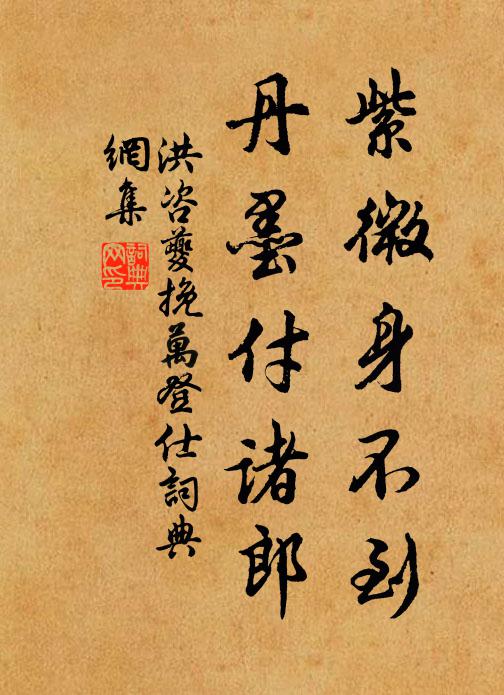 紫微身不到
丹墨付諸郎
洪咨夔挽萬登仕詞典
網集
詞典網印